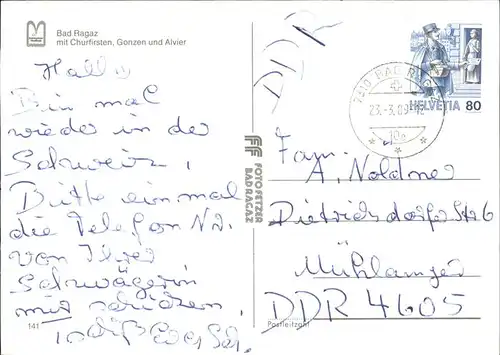 Bad Ragaz
mit Churfirsten, Gonzen und Alvier
Hallo
Bin mal
wieder in der
Schweiz,
Bitte einmal
die Telefon Nr.
von Ihrer
Schwägerin
mir schicken,
141
FF
FOTO FETZER
BAD RAGAZ
DDR
7310 BAD RAGAZ
23.-3.
HELVETIA 80
Fam.
A. Noldner
Dietrichsdorfer Str 6
Mühlanger
DDR 4605
Postleitzahl